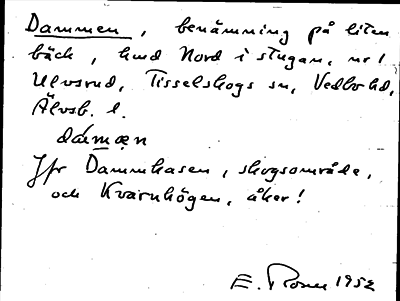 Dammen, benämning på liten
bäck, hmd Nord i stugan, nr 1
Ulvsrud, Tisselskogs sn, Vedbo hd,
Älvsb. l.
dámən
Jfr Dammhasen, skogsområde,
och Kvarnhögen, åker!
E. 1952